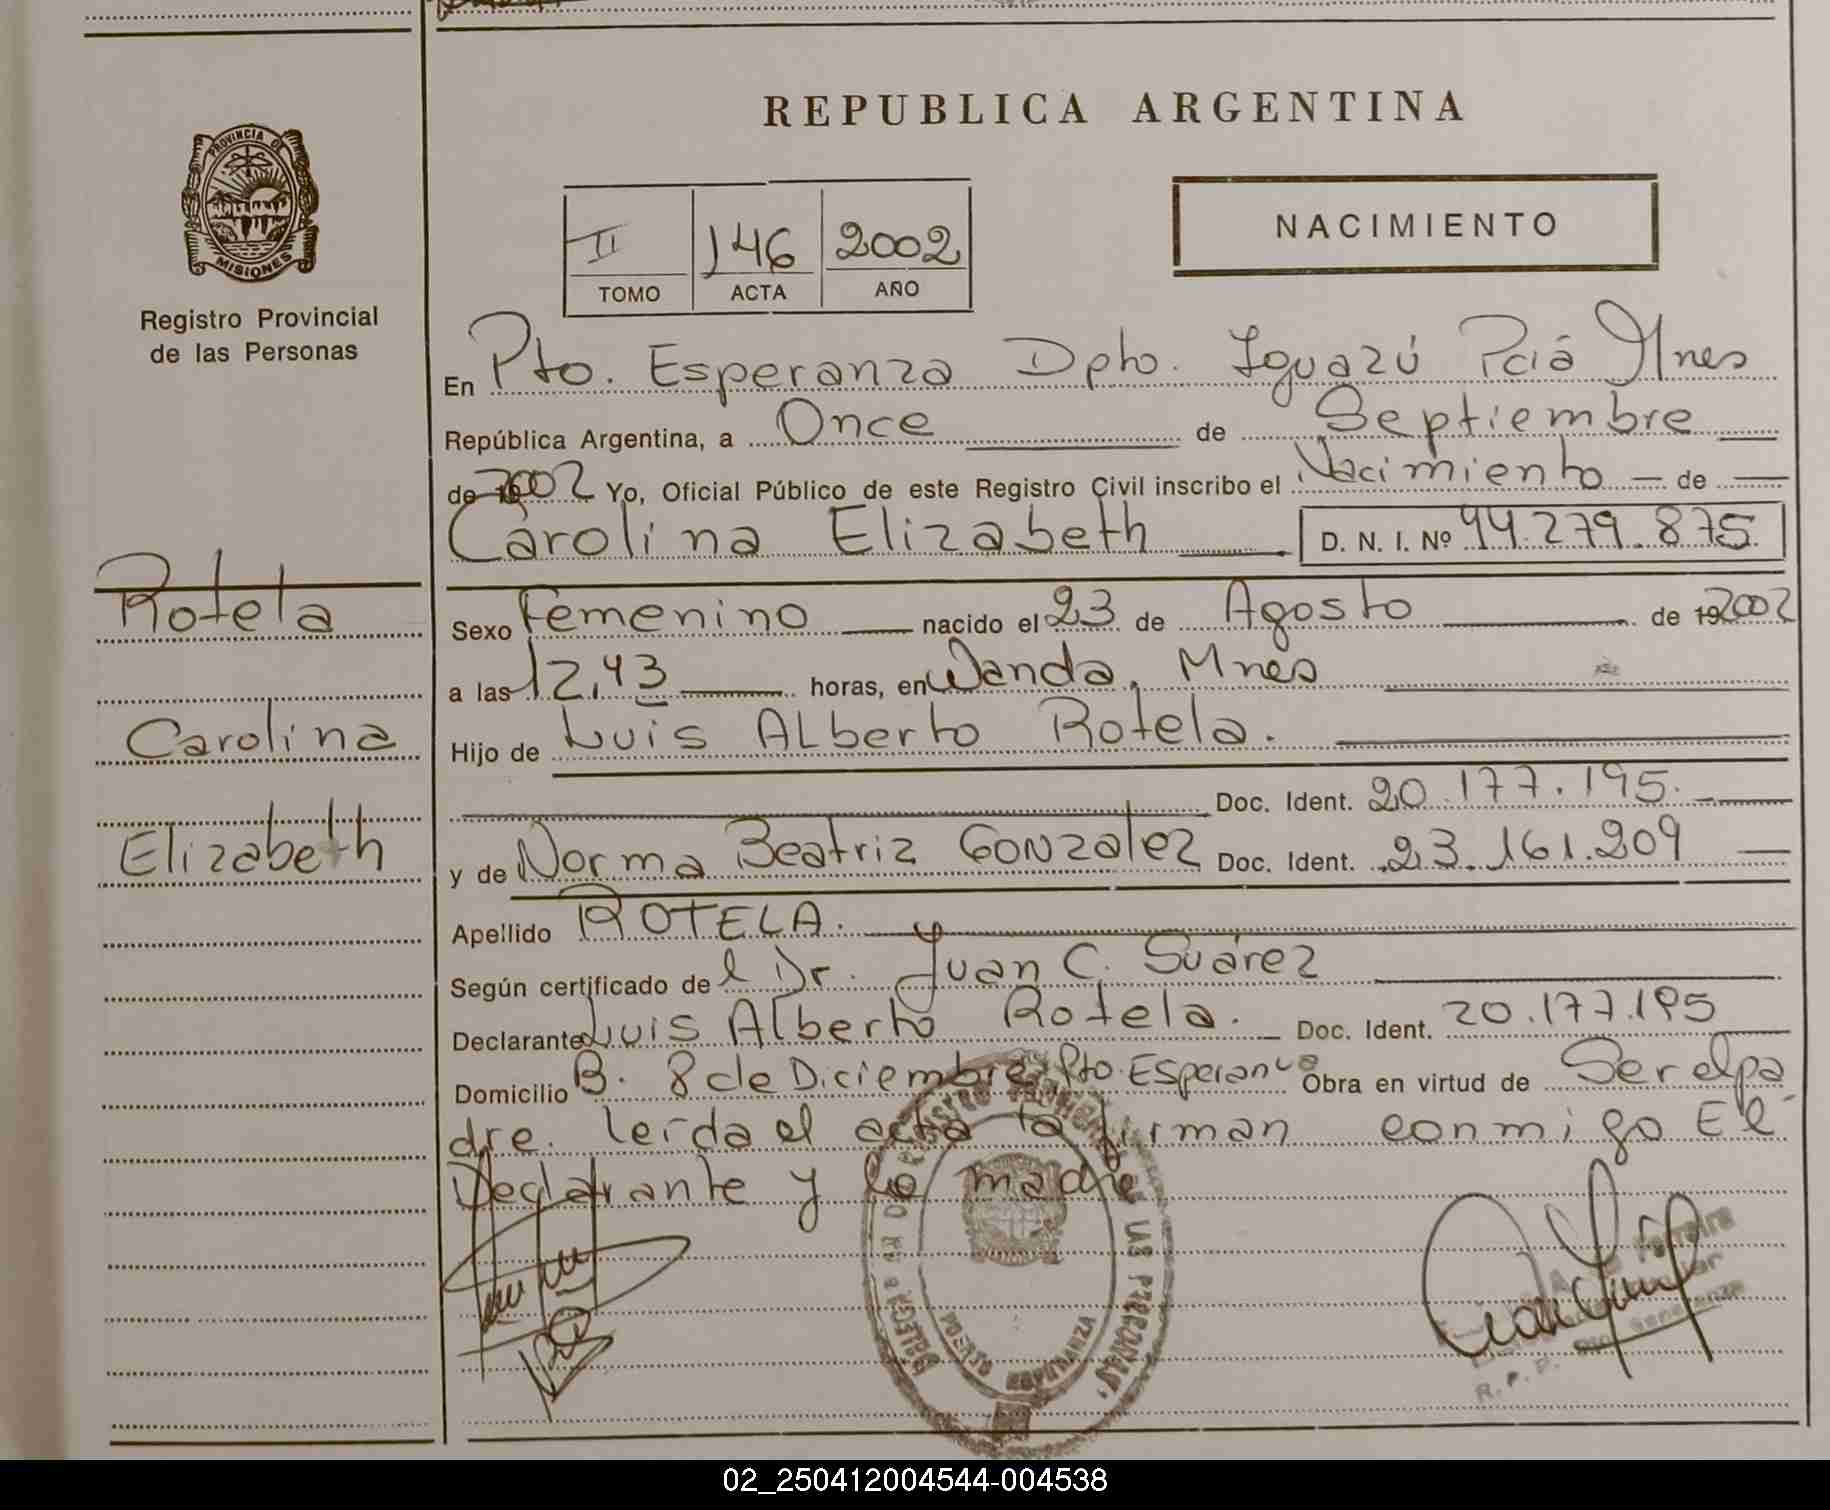 REPUBLICA ARGENTINA
PROVINCIA DE
MISIONES
Registro Provincial
de las Personas
II 146 2002
TOMO ACTA AÑO
NACIMIENTO
En Pto. Esperanza Dpto. Iguazú Pciá Mnes
República Argentina, a Once de Septiembre
de 2002 Yo, Oficial Público de este Registro Civil inscribo el Nacimiento — de —
Carolina Elizabeth D. N. I. Nº 44.279.875
Rotela
Carolina
Elizabeth
Sexo Femenino nacido el 23 de Agosto de 192002
a las 12,43 horas, en Wanda, Mnes
Hijo de Luis Alberto Rotela.
Doc. Ident. 20.177.195.
y de Norma Beatriz Gonzalez Doc. Ident. 23.161.209
Apellido ROTELA.
Según certificado del Dr. Juan C. Suárez
Declarante Luis Alberto Rotela. Doc. Ident. 20.177.195
Domicilio B. 8 de Diciembre, Pto. Esperanza Obra en virtud de Ser el pa
dre. leída el acta la firman conmigo El
Declarante y la madre
DE LAS PERSONAS
PUERTO ESPERANZA
02_250412004544-004538